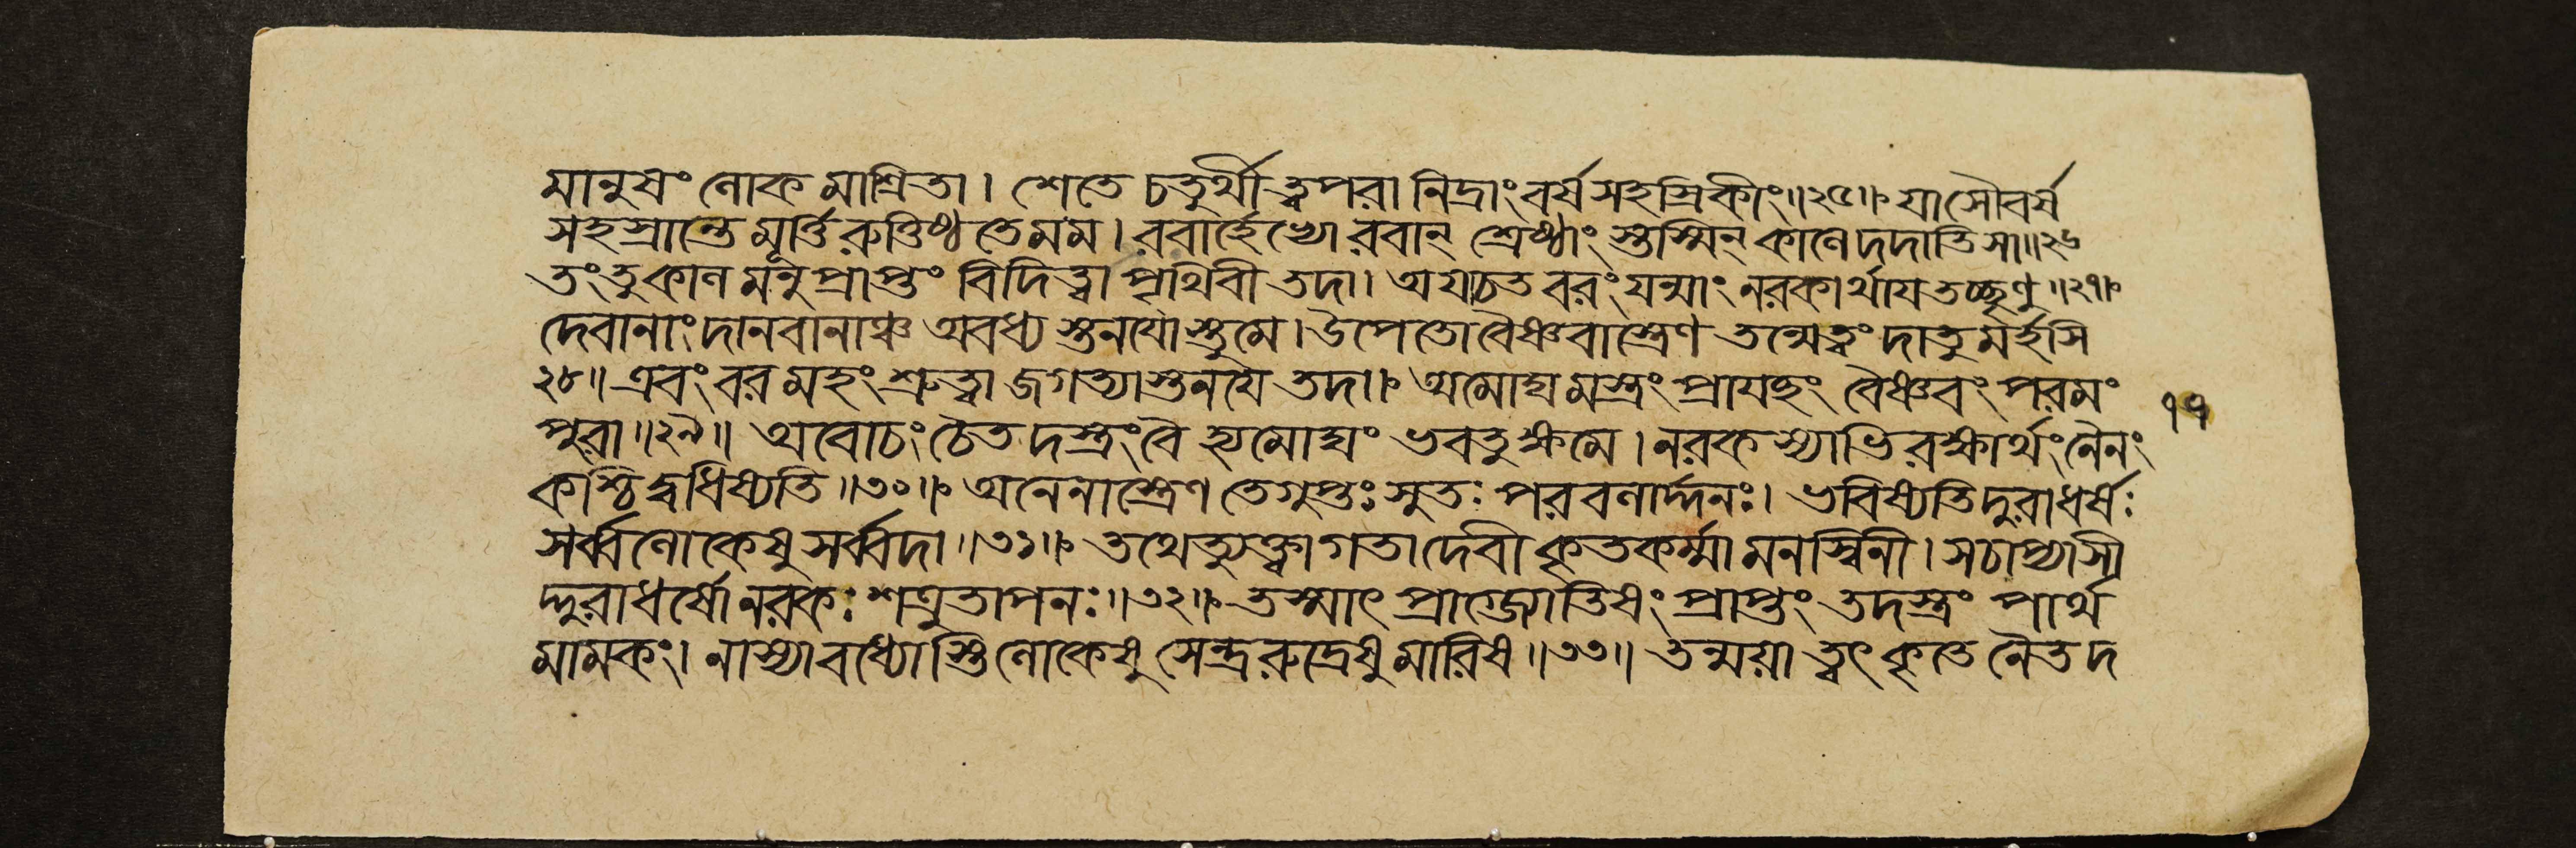 মানুষং লোকমাশ্রিতা। শেতে চতুর্থী ত্বপরা নিদ্রাং বর্ষসহস্রিকীং॥২৫॥ যাসৌ বর্ষ
সহস্রান্তে মূর্ত্তিরুত্তিষ্ঠতে মম। বরার্হেভ্যো বরান্ শ্রেষ্ঠাং স্তস্মিন্ কালে দদাতি সা॥২৬
তং তু কালমনুপ্রাপ্তং বিদিত্বা পৃথিবী তদা। অযাচত বরং যন্মাং নরকার্থায তচ্ছৃণু॥২৭॥
দেবানাং দানবানাঞ্চ অবধ্যস্তনযোস্তু মে। উপেতো বৈষ্ণবাস্ত্রেণ তন্মে ত্বং দাতুমর্হসি
২৮॥ এবং বরমহং শ্রুত্বা জগত্যাস্তনযে তদা॥ অমোঘমস্ত্রং প্রাযচ্ছং বৈষ্ণবং পরমং
পুরা॥২৯॥ অবোচং চৈতদস্ত্রং বৈ হ্যমোঘং ভবতু ক্ষমে। নরকস্যাভিরক্ষার্থং নৈনং
কশ্চিদ্বধিষ্যতি॥৩০॥ অনেনাস্ত্রেণ তে গুপ্তঃ সুতঃ পরবলার্দ্দনঃ। ভবিষ্যতি দুরাধর্ষঃ
সর্ব্বলোকেষু সর্ব্বদা॥৩১॥ তথেত্যুক্ত্বা গতা দেবী কৃতকর্ম্মা মনস্বিনী। স চাপ্যাসী
দ্দুরাধর্ষো নরকঃ শত্রুতাপনঃ॥৩২॥ তস্মাৎ প্রাগ্জ্যোতিষং প্রাপ্তং তদস্ত্রং পার্থ
মামকং। নাস্যাবধ্যোস্তি লোকেষু সেন্দ্ররুদ্রেষু মারিষ॥৩৩॥ তন্ময়া ত্বৎকৃতে নৈতদ